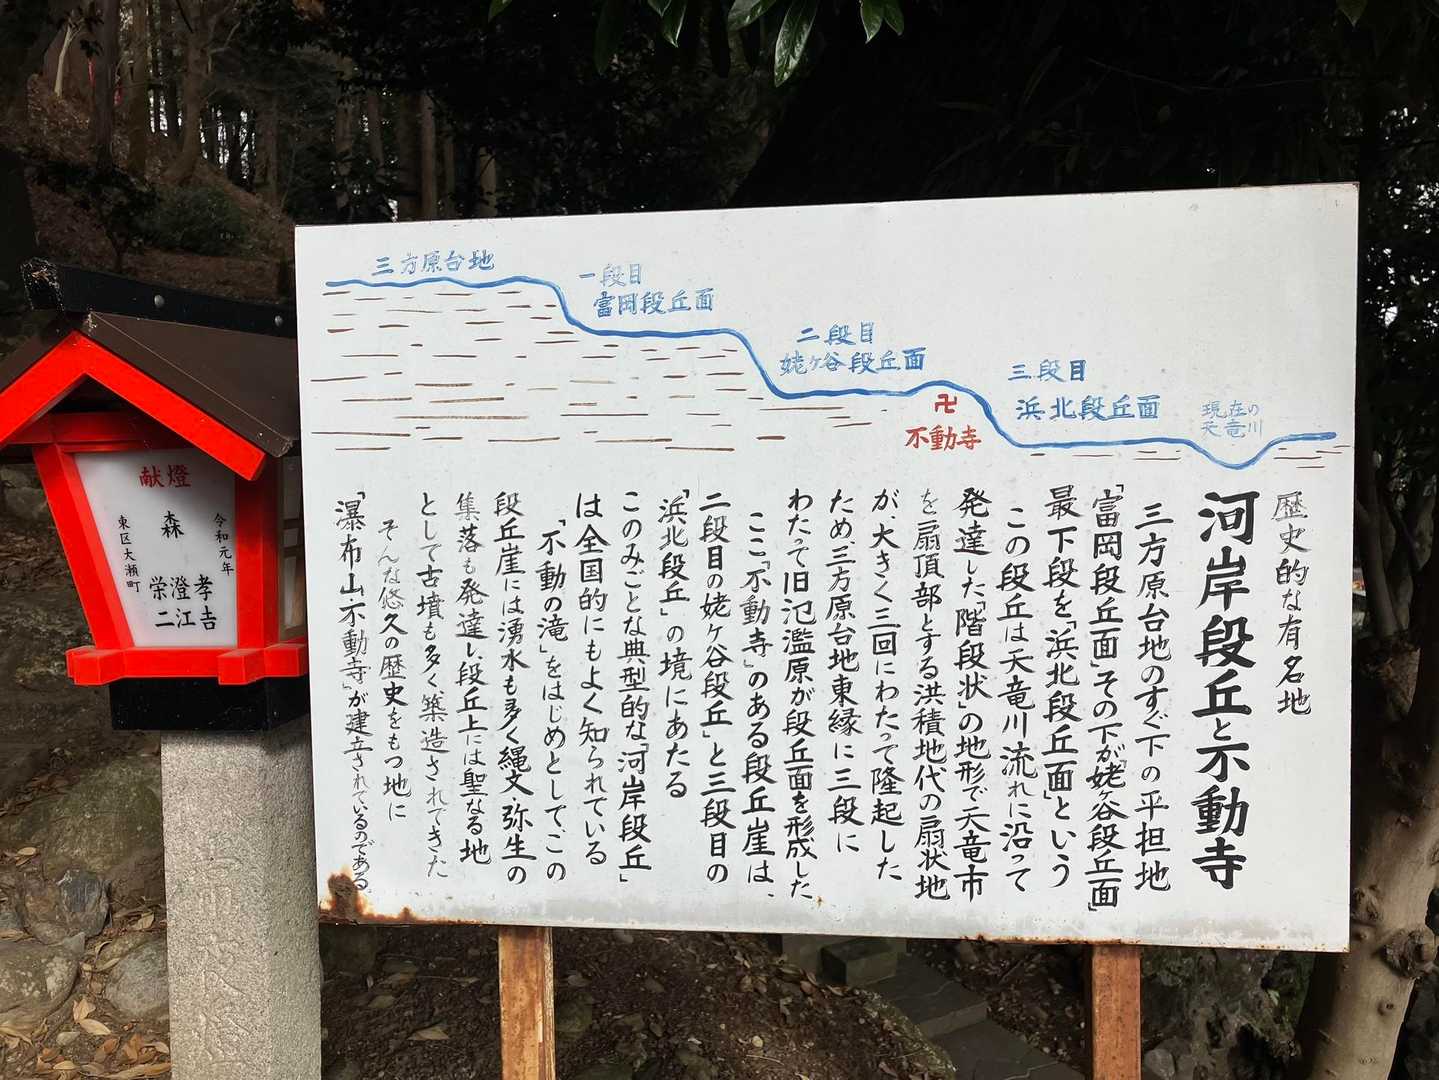 三方原台地
一段目
富岡段丘面
二段目
姥ヶ谷段丘面
卍
不動寺
三段目
浜北段丘面
現在の
天竜川
歴史的な有名地
河岸段丘と不動寺
三方原台地のすぐ下の平担地
「富岡段丘面」その下が「姥ヶ谷段丘面」
最下段を「浜北段丘面」という
この段丘は天竜川流れに沿って
発達した「階段状」の地形で天竜市
を扇頂部とする洪積地代の扇状地
が、大きく三回にわたって隆起した
ため、三方原台地東縁に三段に
わたって旧氾濫原が段丘面を形成した
ここ「不動寺」のある段丘崖は、
二段目の姥ヶ谷段丘」と三段目の
「浜北段丘」の境にあたる
このみごとな典型的な「河岸段丘」
は全国的にもよく知られている
「不動の滝」をはじめとして、この
段丘崖には湧水も多く縄文、弥生の
集落も発達し、段丘上には聖なる地
として古墳も多く築造されてきた
そんな悠久の歴史をもつ地に
「瀑布山不動寺」が建立されているのである。
献燈
令和元年
森 孝吉
澄江
栄二
東区大瀬町